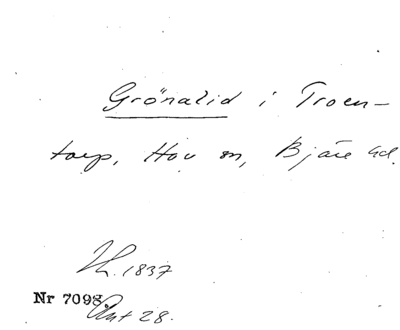 Grönalid i Troen-
torp, Hov sn, Bjäre hd.
Th. 1837
Nr 7098
Ant 28.